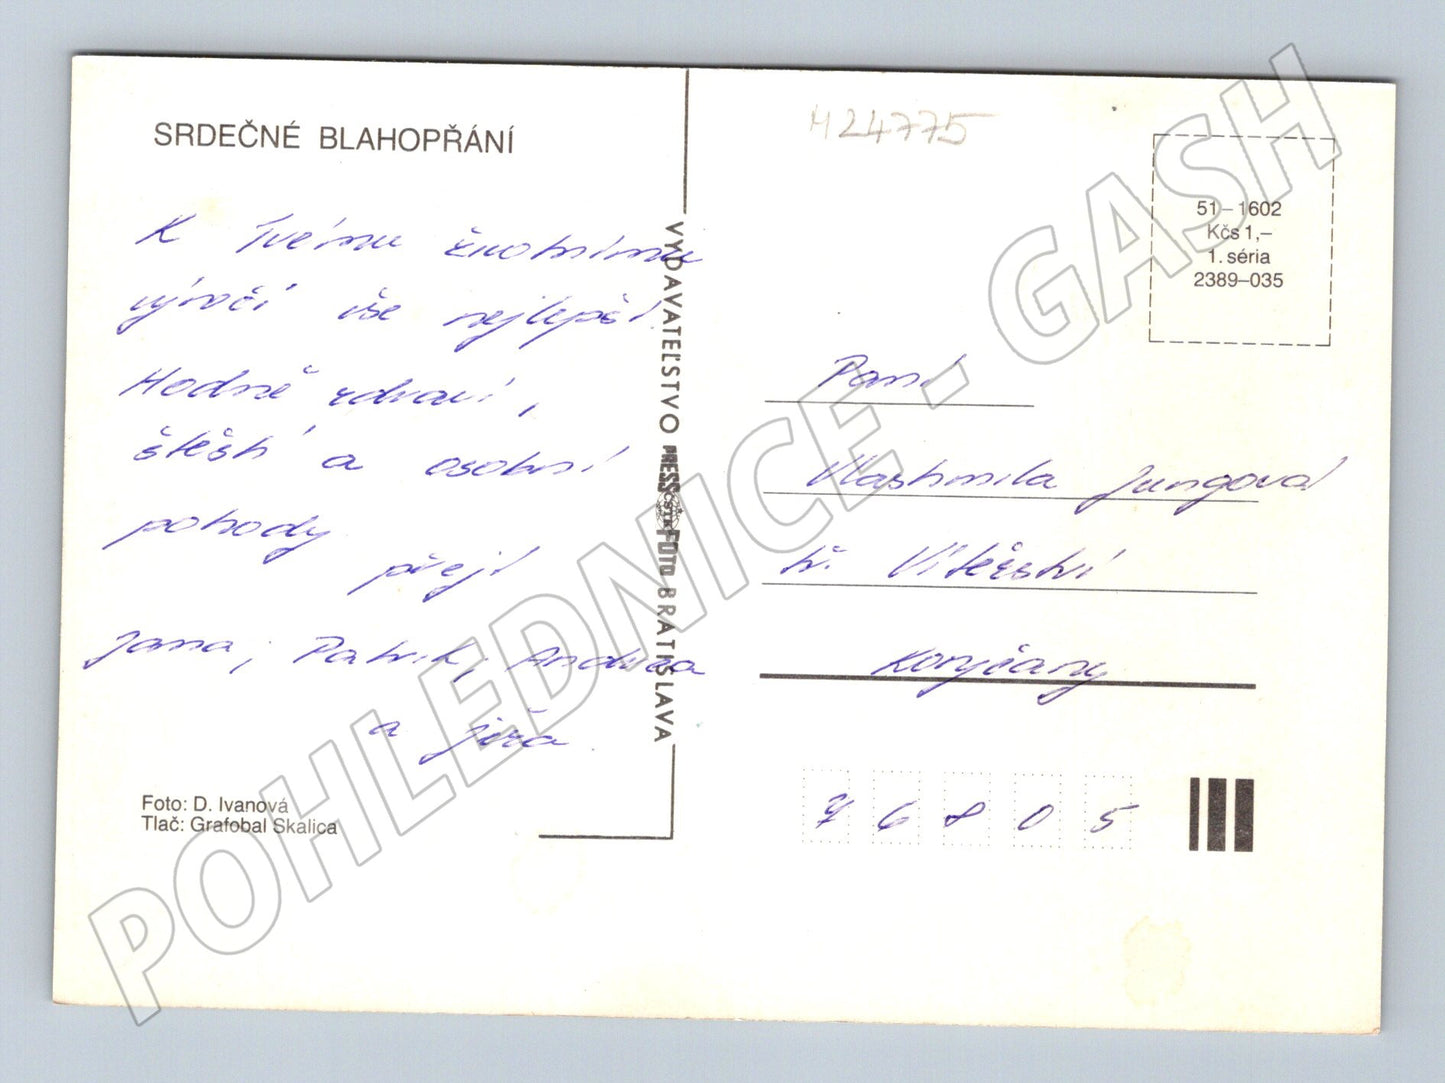 SRDEČNÉ BLAHOPŘÁNÍ
K Tvému životnímu
výročí vše nejlepší.
Hodně zdraví,
štěstí a osobní
pohody
přejí
Jana, Patrik, Andrea
a Jiřa.
Foto: D. Ivanová
Tlač: Grafobal Skalica
VYDAVATEĽSTVO PRESSFOTO BRATISLAVA
ČSTK
M24775
51–1602
Kčs 1,–
1. séria
2389–035
Paní
Vlastimila Jungová
tř. Vítězství
Koryčany
76805
POHLEDNICE - GASH